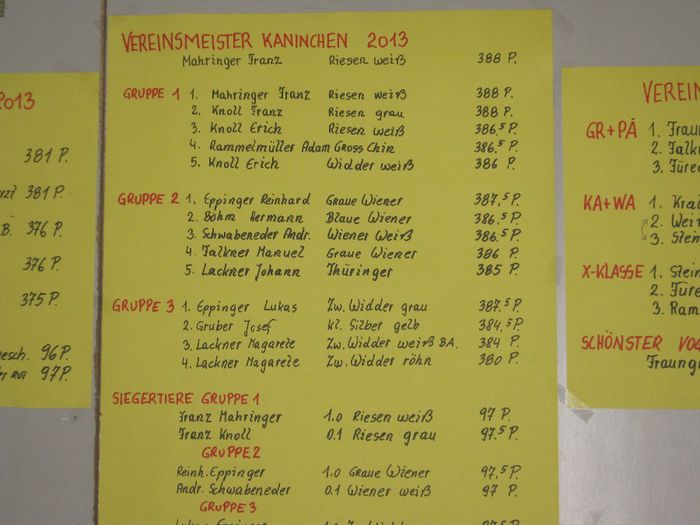 2013
381 P.
381 P.
B. 376 P.
376 P.
375 P.
96 P.
97 P.
VEREINSMEISTER KANINCHEN 2013
Mahringer Franz Riesen weiß 388 P.
GRUPPE 1 1. Mahringer Franz Riesen weiß 388 P.
2. Knoll Franz Riesen grau 388 P.
3. Knoll Erich Riesen weiß 386,5 P.
4. Rammelmüller Adam Gross Chin 386,5 P.
5. Knoll Erich Widder weiß 386 P.
GRUPPE 2 1. Eppinger Reinhard Graue Wiener 387,5 P.
2. Böhm Hermann Blaue Wiener 386.5 P.
3. Schwabeneder Andr. Wiener Weiß 386.5 P.
4. Falkner Manuel Graue Wiener 386 P.
5. Lackner Johann Thüringer 385 P.
GRUPPE 3 1. Eppinger Lukas Zw. Widder grau 387.5 P.
2. Gruber Josef Kl. Silber gelb 384,5 P.
3. Lackner Magarete Zw. Widder weiß BA. 384 P.
4. Lackner Magarete Zw. Widder röhn 380 P.
SIEGERTIERE GRUPPE 1
Franz Mahringer 1.0 Riesen weiß 97 P.
Franz Knoll 0.1 Riesen grau 97.5 P.
GRUPPE 2
Reinh. Eppinger 1.0 Graue Wiener 97,5 P.
Andr. Schwabeneder 0.1 Wiener weiß 97 P.
GRUPPE 3
VEREIN
GR+PÄ 1. Fraun
2. Falkn
3. Füre
KA+WA 1. Krai
2. Wein
3. Stein
X-KLASSE 1. Stein
2. Füre
3. Ram
SCHÖNSTER VOG
Fraung